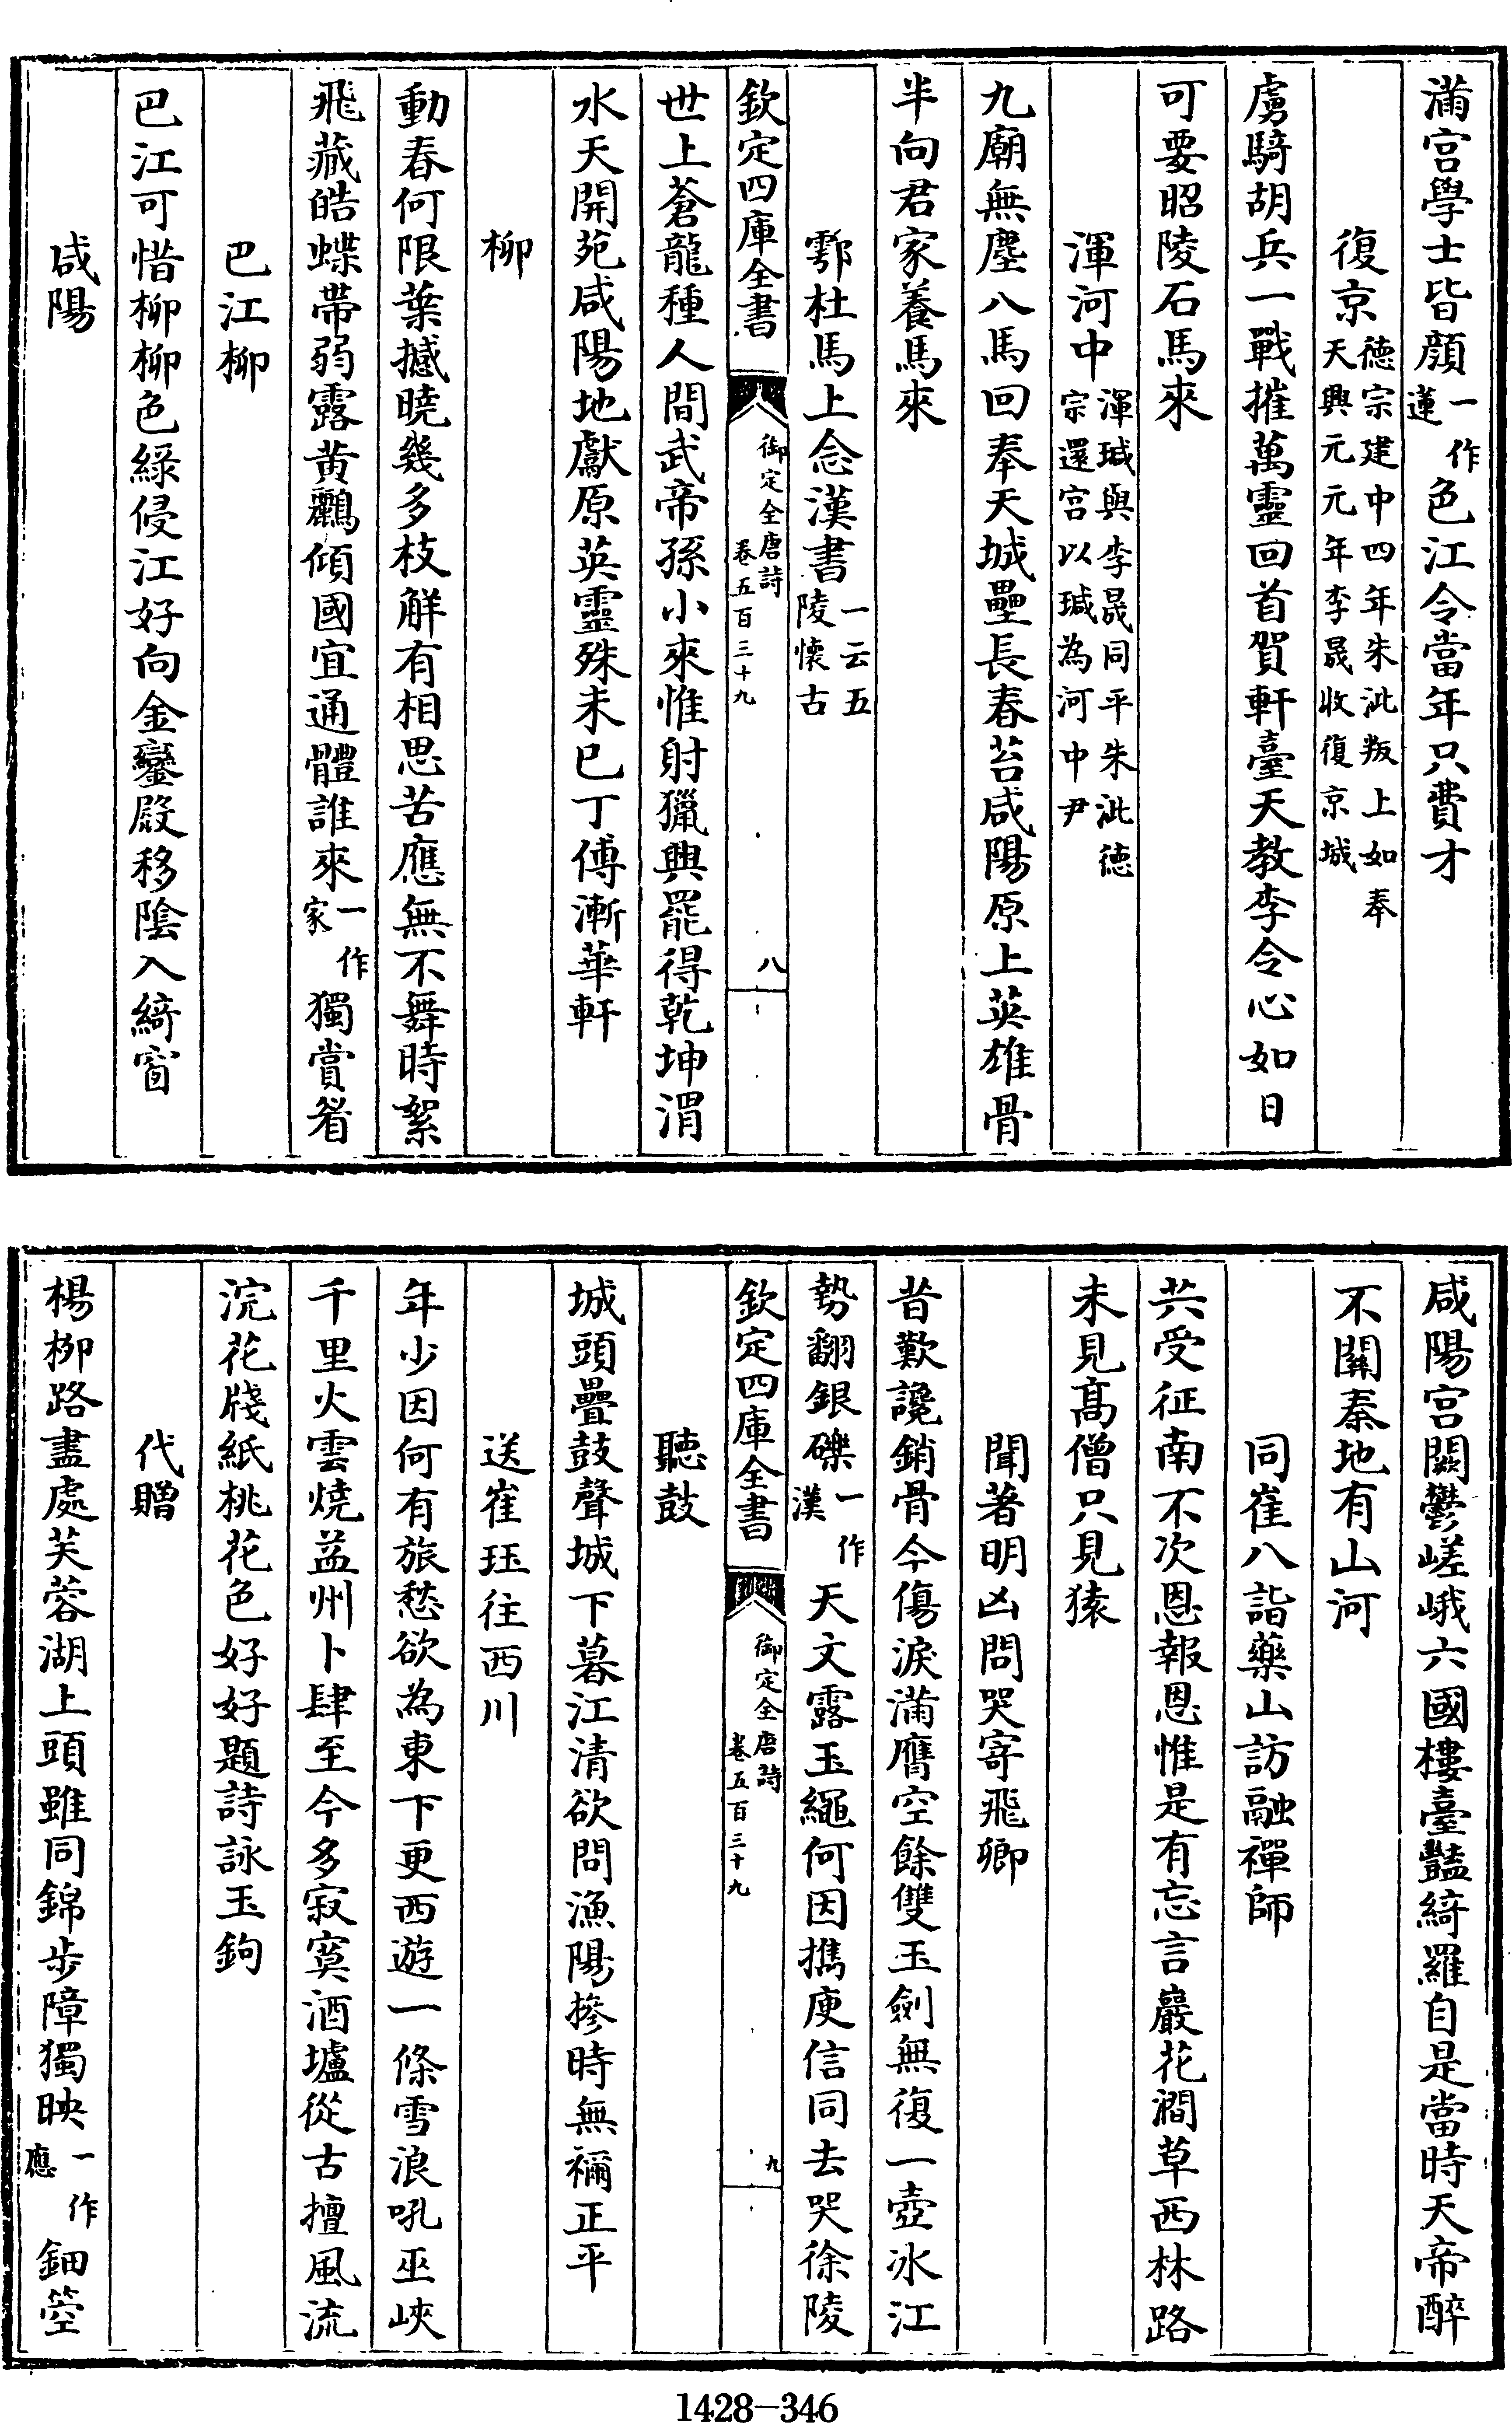 滿宫學士皆顔一作蓮色江令當年只費才
復京德宗建中四年朱泚叛上如奉天興元元年李晟收復京城
虜騎胡兵一戰摧萬靈回首賀軒臺天教李令心如日
可要昭陵石馬來
渾河中渾瑊與李晟同平朱泚德宗還宫以瑊為河中尹
九廟無塵八馬回奉天城壘長春苔咸陽原上英雄骨
半向君家養馬來
鄠杜馬上念漢書一云五陵懷古
欽定四庫全書 御定全唐詩卷五百三十九 八
世上蒼龍種人間武帝孫小來惟射獵興罷得乾坤渭
水天開苑咸陽地獻原英靈殊未已丁傅漸華軒
柳
動春何限葉撼曉幾多枝解有相思苦應無不舞時絮
飛藏皓蝶帶弱露黄鸝傾國宜通體誰來一作家獨賞眉
巴江柳
巴江可惜柳柳色綠侵江好向金鑾殿移陰入綺窗
咸陽
咸陽宫闕鬱嵯峨六國樓臺豔綺羅自是當時天帝醉
不關秦地有山河
同崔八詣藥山訪融禪師
共受征南不次恩報恩惟是有忘言巖花澗草西林路
未見髙僧只見猿
聞著明凶問哭寄飛卿
昔歎讒銷骨今傷淚滿膺空餘雙玉劍無復一壺冰江
勢翻銀礫一作漢天文露玉繩何因攜庾信同去哭徐陵
欽定四庫全書 御定全唐詩卷五百三十九 九
聽鼓
城頭疊鼓聲城下暮江清欲問漁陽摻時無禰正平
送崔珏往西川
年少因何有旅愁欲為東下更西遊一條雪浪吼巫峽
千里火雲燒益州卜肆至今多寂寞酒壚從古擅風流
浣花牋紙桃花色好好題詩詠玉鉤
代贈
楊柳路盡處芙蓉湖上頭雖同錦步障獨映一作應鈿箜
1428-346